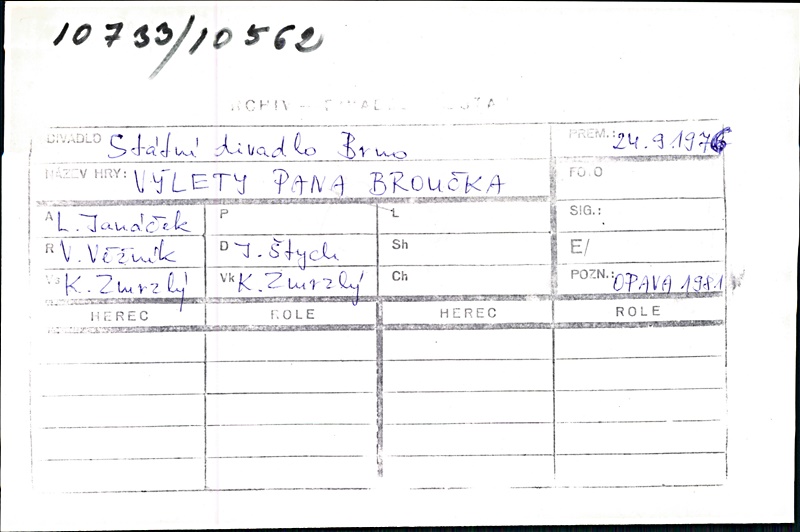 10733/10562
DIVADLO Státní divadlo Brno PREM.: 24.9.1976
NÁZEV HRY: VÝLETY PANA BROUČKA FOTO
A L. Janáček P L SIG.:
R V. Věžník D J. Štych Sh E/
K. Zmrzlý Vk K. Zmrzlý Ch POZN.: OPAVA 1981
HEREC ROLE HEREC ROLE